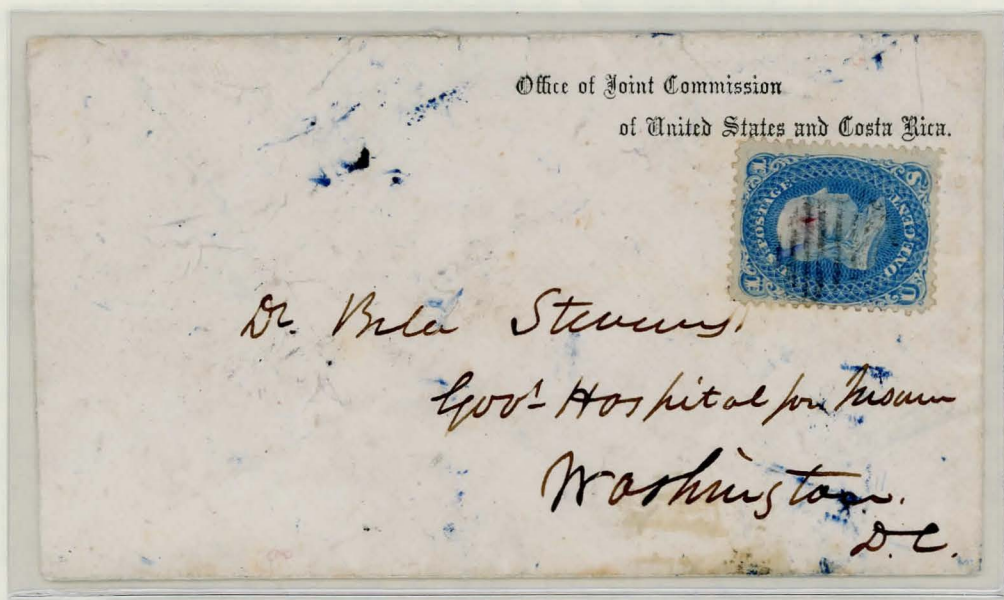 Office of Joint Commission
of United States and Costa Rica.
U.S. POSTAGE
ONE CENT
1 1
U S
Dr. Bela Stevens.
Gov't Hospital for Insane
Washington.
D.C.